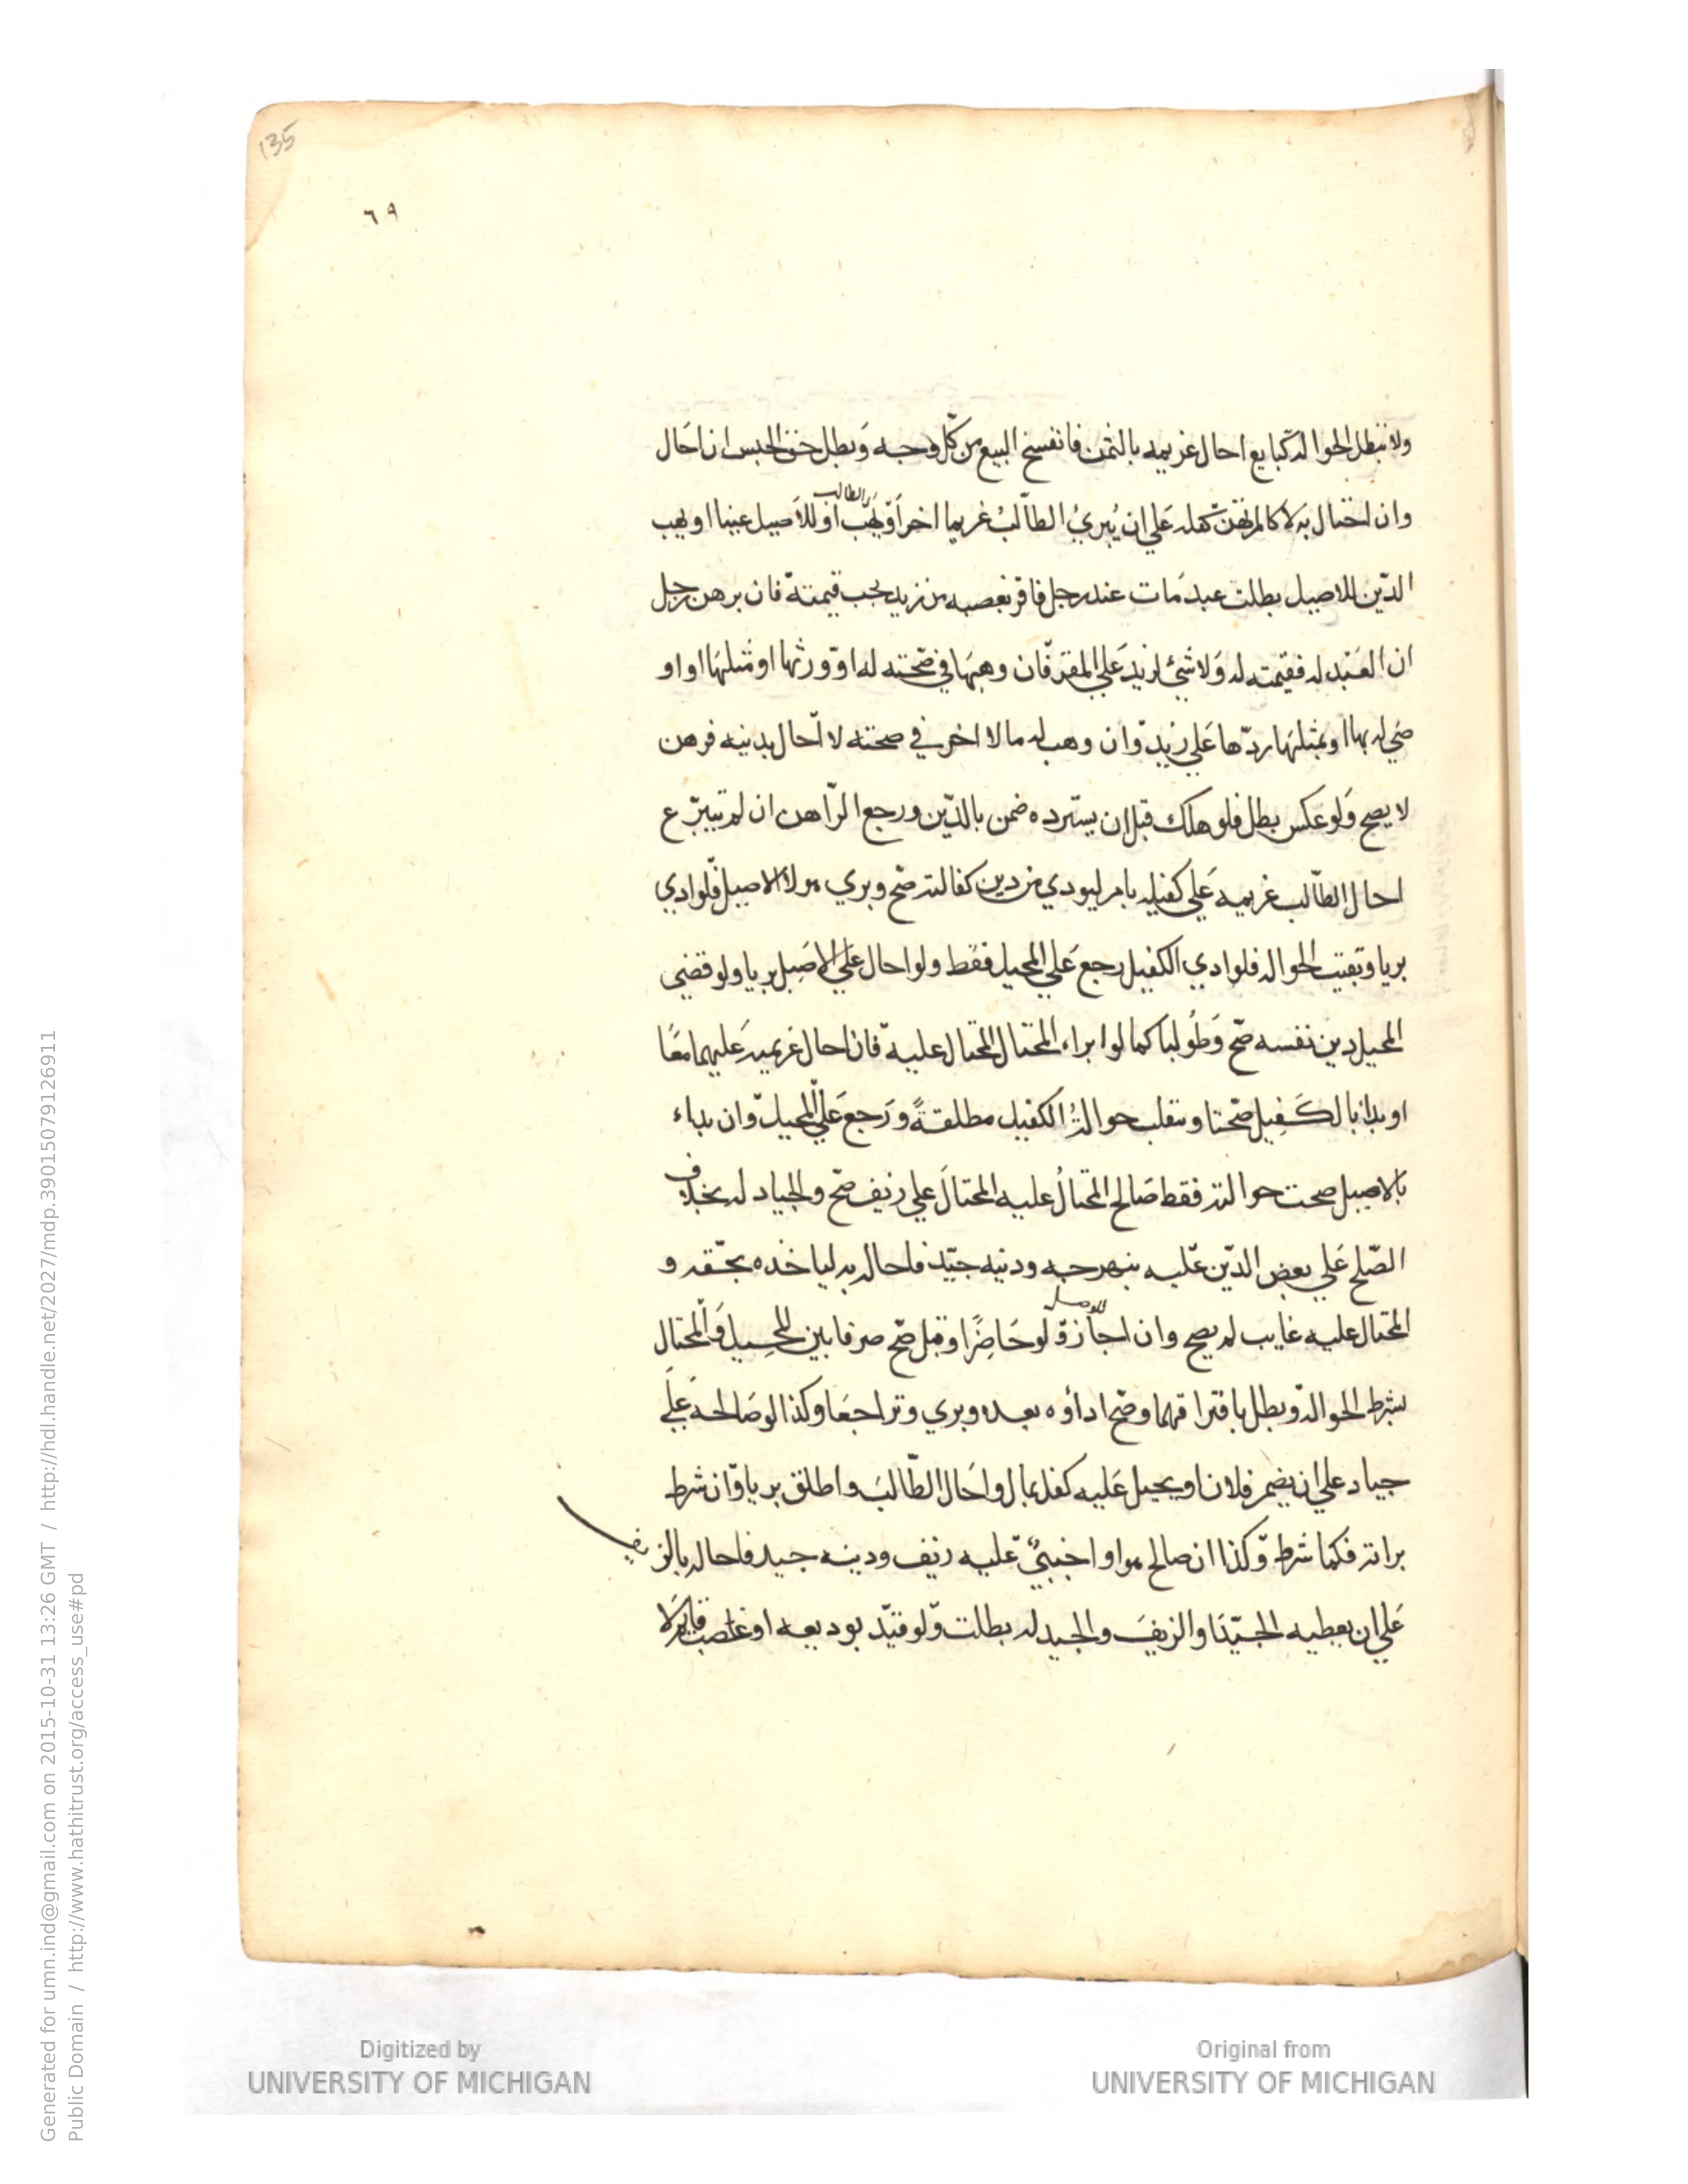 135
٦٩
ولا تبطل الحوالة كبايع احال غريمه بالثمن فانفسخ البيع من كل وجه وَبطل حق الحبس ان احَال
وان احتال به لا كالمرتهن كفله عَلي ان يُبريُ الطالبُ غريما اخر اوّ يهَب الطالب اوّ للاَصيل عينا او يهب
الدّين للاصيل بطلت عبد مَات عند رجل فاقر بغصبه من زيد يجب قيمتهّ فان برهن رجل
ان العَبد له فقيمته له وَلا شئ لزيد عَلي المقرّ فان وهبهَا في صحته له اوّ ورثها او مثلهَا او او
صَي له بها او بمثلهَا ردّها عَلي زيد وّان وهب له مالا اخر في صحته لا احَال بدينه فرهن
لا يصح وَلو عكس بطل فلو هلك قبل ان يسترده ضمن بالدّين ورجع الرّاهن ان لم يتبرّع
احال الطّالب غريمه عَلي كفيله بامر ليودي من دين كفالته صَح وبري هو لا الاصيل فلّو ادي
بريا وبقيت الحوالة فلو ادي الكفيل رجع عَلي المحيل فقَط ولو احال عَلي الاصِيل بريا ولو قضي
المحيل دين نفسه صّح وَطُولبا كما لو ابراء المحتال المحتال عليهّ فان احال غريميه عَليهما معًا
او بداٴ بالكَفِيل صّحتا وينقلب حوالةُ الكفيل مطلقةً ورَجع عَلي المحيل وّان بداء
بالاصيل صحت حوالته فقط صَالح المحتالُ عليه المحتالَ علي زيف صّح والجياد له بخلاف
الصّلح عَلي بعض الدّين عّليه بنهرجه ودينه جيّد فاحاله به لياخذه بحّقه و
المحتال عليه غايب لم يصح وان اجازةّ لو حَاضِرًا وقبل صّح صرفا بين المحيل وَالمحتال
بشرط الحوالة وّبطل بافتراقهما وصّح اداٴوه بعده وبري وتراجعَا وكذا لو صَالحه عَلَي
جياد علي ان يضمن فلان او يحيل عَليه كفل بمال واحَال الطّالبَ واطلق بريا وّان شرط
براته فكما شرط وّكذا ان صالح هو او اجنبيٌّ عّليه زيف ودينه جيد فاحاله بالزيف
عَلي ان يعطيه الجّيد او الزيفَ والجيد له بطلت وّلو قيّد بوديعه او غاصب
Digitized by
UNIVERSITY OF MICHIGAN
Original from
UNIVERSITY OF MICHIGAN
Generated for umn.ind@gmail.com on 2015-10-31 13:26 GMT / http://hdl.handle.net/2027/mdp.39015079126911
Public Domain / http://www.hathitrust.org/access_use#pd